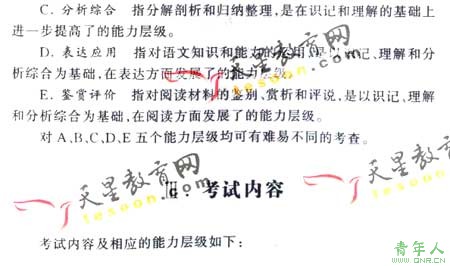 C. 分析综合 指分解剖析和归纳整理,是在识记和理解的基础上
进一步提高了的能力层级。
D. 表达应用 指对语文知识和能力的运用,是以识记、理解和分
析综合为基础,在表达方面发展了的能力层级。
E. 鉴赏评价 指对阅读材料的鉴别、赏析和评说,是以识记、理解
和分析综合为基础,在阅读方面发展了的能力层级。
对A,B,C,D,E五个能力层级均可有难易不同的考查。
天星教育网
tesoon.com
天星教育网
tesoon.com
天星教育网
tesoon.com
考试内容
考试内容及相应的能力层级如下:
青年人
WWW.QNR.CN